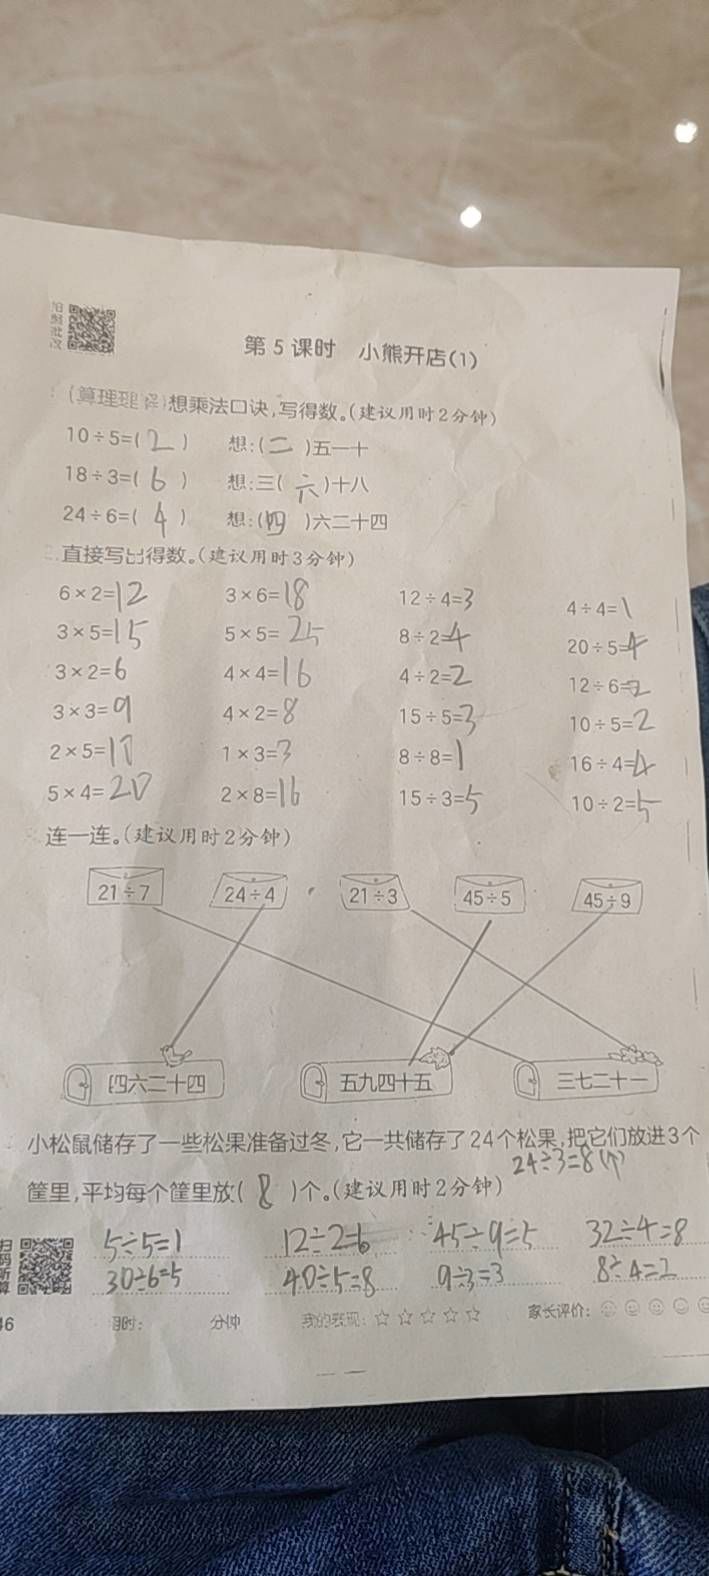 拍照批改
第5课时 小熊开店(1)
(算理理解)想乘法口诀,写得数。(建议用时2分钟)
10÷5=(2) 想:(二)五一十
18÷3=(6) 想:三(六)十八
24÷6=(4) 想:(四)六二十四
二直接写出得数。(建议用时3分钟)
6×2=12 3×6=18 12÷4=3 4÷4=1
3×5=15 5×5=25 8÷2=4 20÷5=4
3×2=6 4×4=16 4÷2=2 12÷6=2
3×3=9 4×2=8 15÷5=3 10÷5=2
2×5=10 1×3=3 8÷8=1 16÷4=4
5×4=20 2×8=16 15÷3=5 10÷2=5
连一连。(建议用时2分钟)
21÷7 24÷4 21÷3 45÷5 45÷9
四六二十四 五九四十五 三七二十一
小松鼠储存了一些松果准备过冬,它一共储存了24个松果,把它们放进3个
24÷3=8(个)
筐里,平均每个筐里放(8)个。(建议用时2分钟)
扫码听算
5÷5=1 12÷2=6 45÷9=5 32÷4=8
30÷6=5 40÷5=8 9÷3=3 8÷4=2
46 用时: 分钟 我的表现:☆☆☆☆☆ 家长评价: